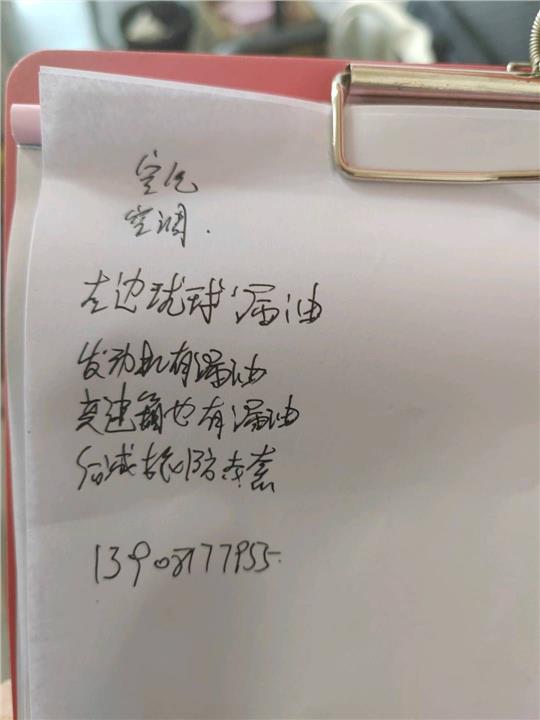 空气
空调.
左边球球漏油
发动机有漏油
变速箱也有漏油
后减振 防 套
139 77955